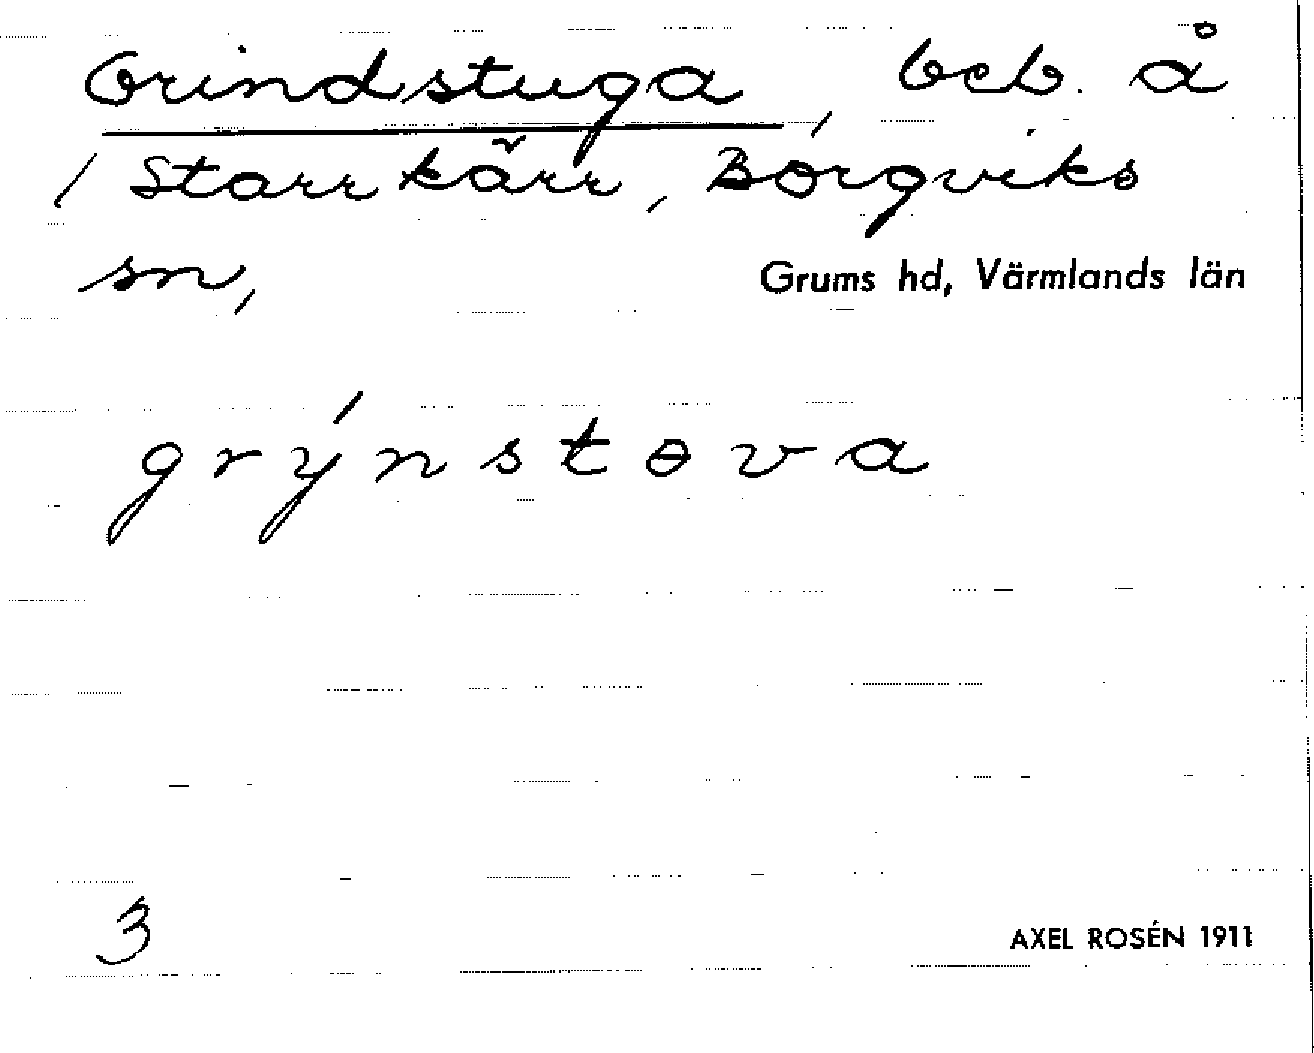 Grindstuga, beb. å
/ Starrkärr, Borgviks
sn, Grums hd, Värmlands län
grýnstɵva
3 AXEL ROSÉN 1911